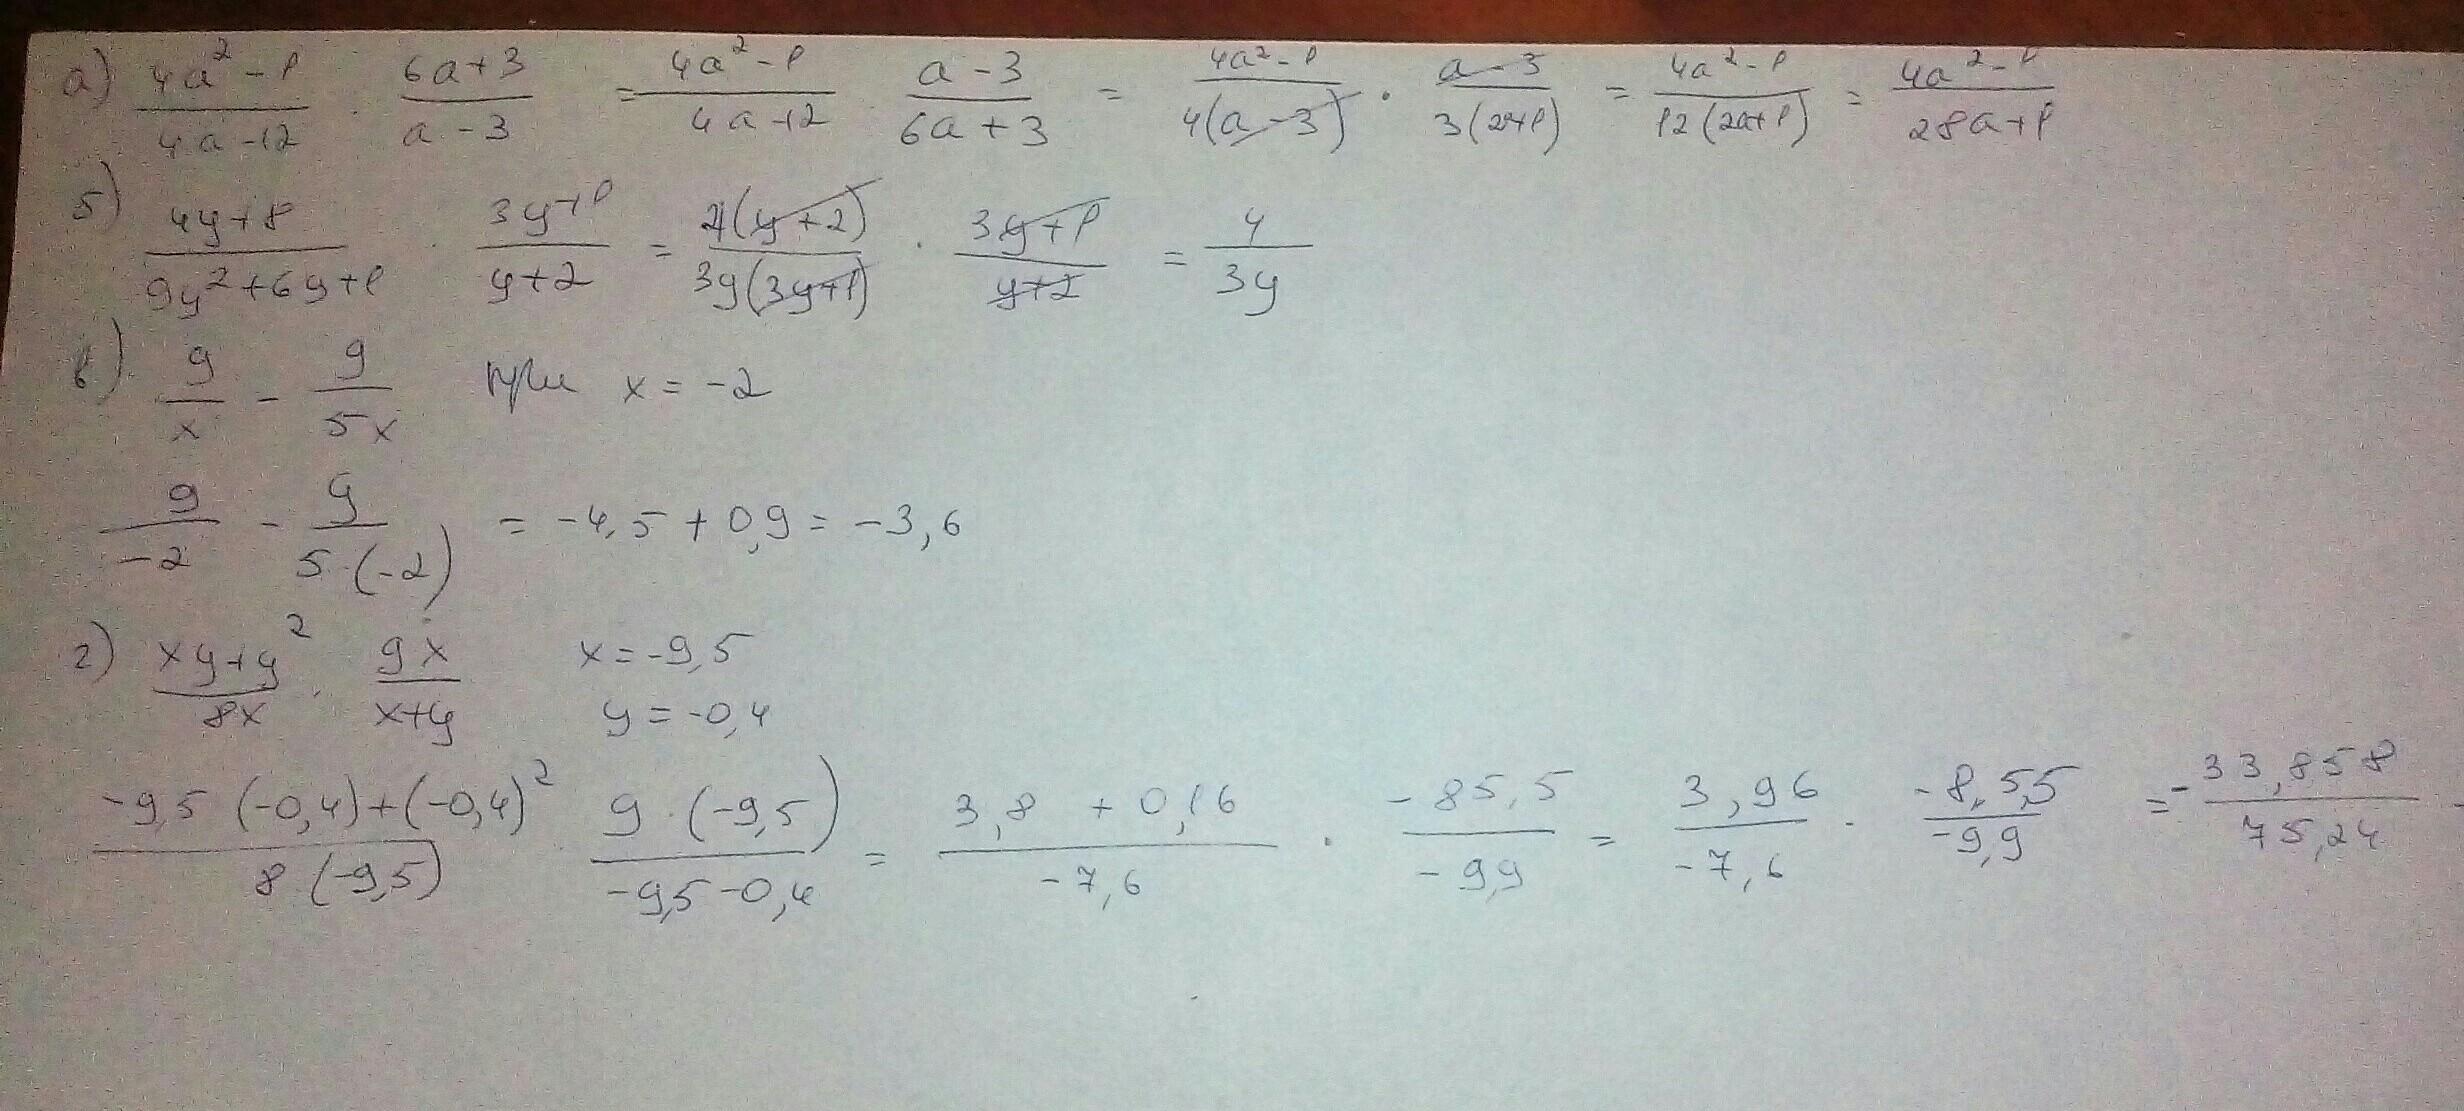 а) (4a² - 1)/(4a - 12) · (6a + 3)/(a - 3) = (4a² - 1)/(4a - 12) · (a - 3)/(6a + 3) = (4a² - 1)/(4(a - 3)) · (a - 3)/(3(2a + 1)) = (4a² - 1)/(12(2a + 1)) = (4a² - 1)/(28a + 1)
б) (4y + 8)/(9y² + 6y + 1) · (3y + 1)/(y + 2) = 4(y + 2)/(3y(3y + 1)) · (3y + 1)/(y + 2) = 4/(3y)
в) 9/x - 9/(5x) при x = -2
9/(-2) - 9/(5·(-2)) = -4,5 + 0,9 = -3,6
г) (xy + y²)/(8x) · 9x/(x + y) x = -9,5
y = -0,4
(-9,5 (-0,4) + (-0,4)²)/(8 (-9,5)) · (9·(-9,5))/(-9,5 - 0,4) = (3,8 + 0,16)/(-7,6) · (-85,5)/(-9,9) = 3,96/(-7,6) · (-8,55)/(-9,9) = -33,858/75,24